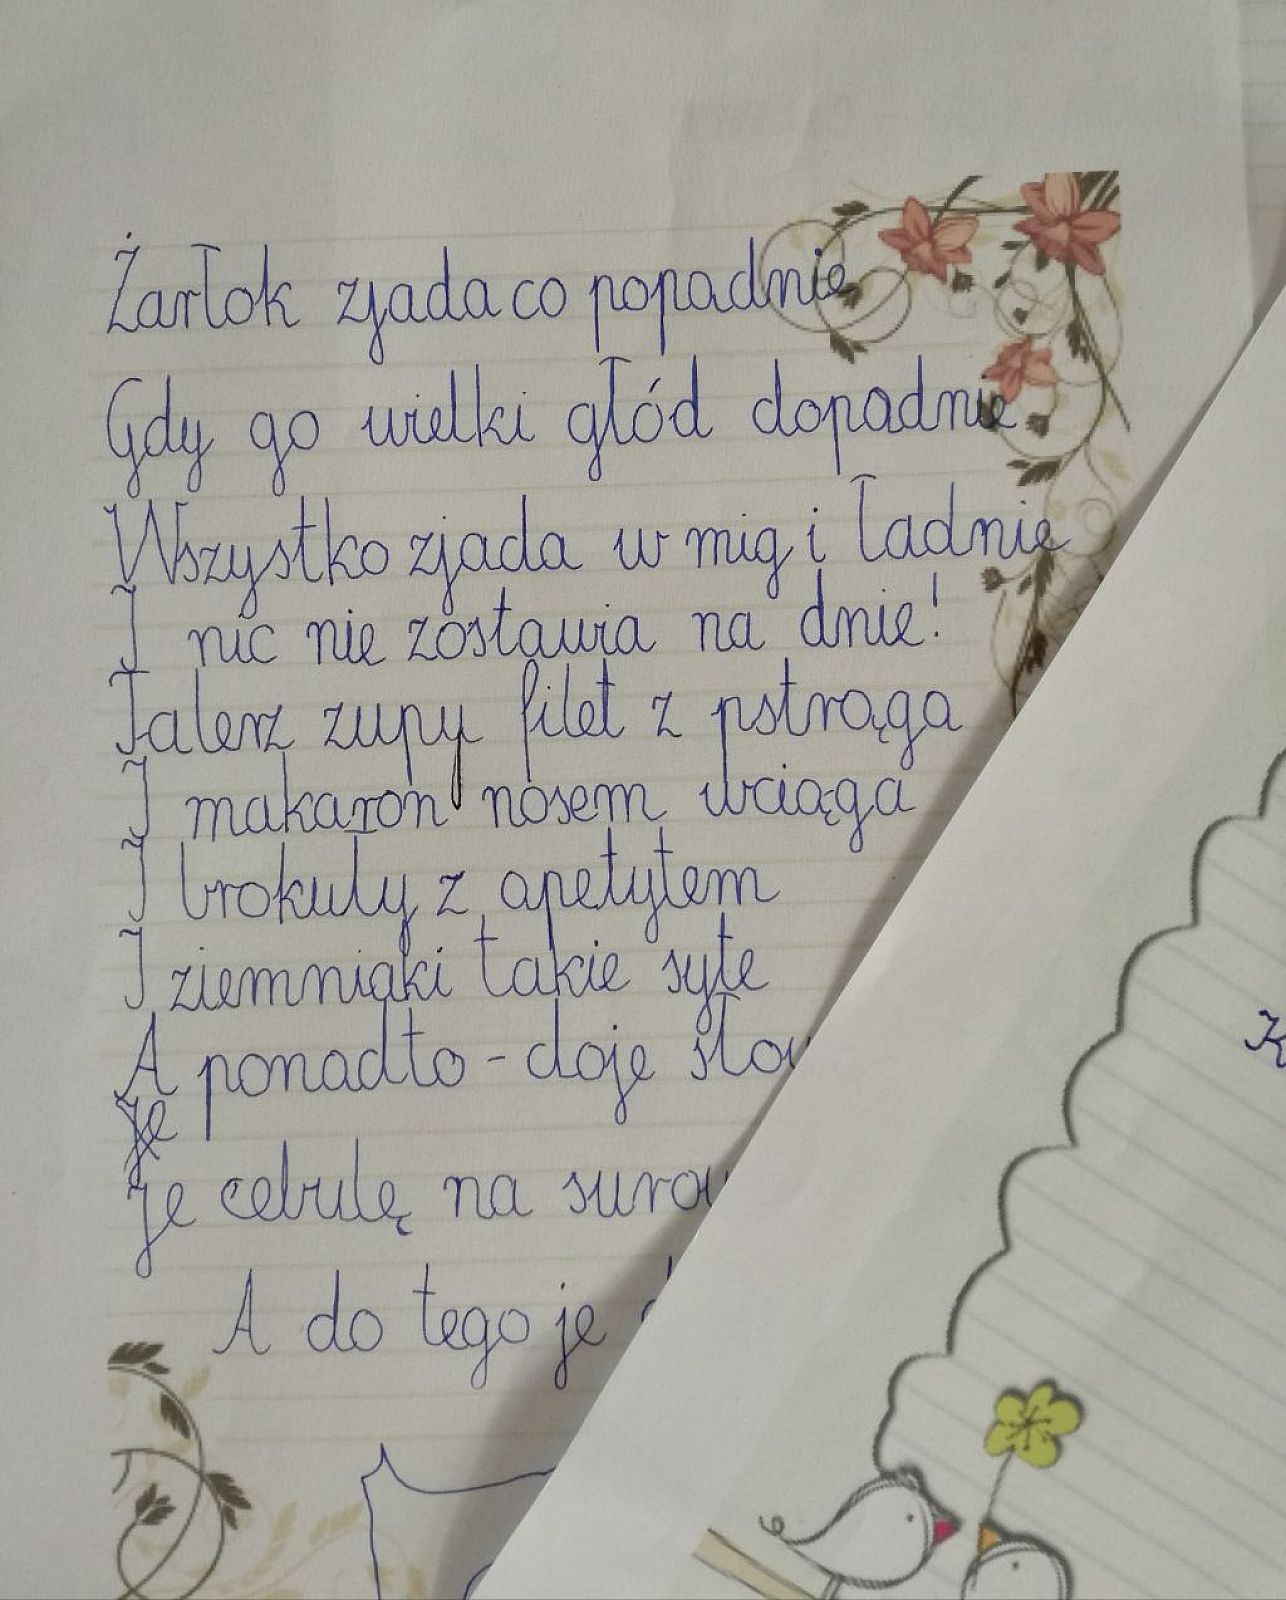 Żarłok zjada co popadnie
Gdy go wielki głód dopadnie
Wszystko zjada w mig i ładnie
I nic nie zostawia na dnie!
Talerz zupy filet z pstrąga
I makaron nosem wciąga
I brokuły z apetytem
I ziemniaki takie syte
A ponadto - doje
je
Je cebulę na
A do tego je